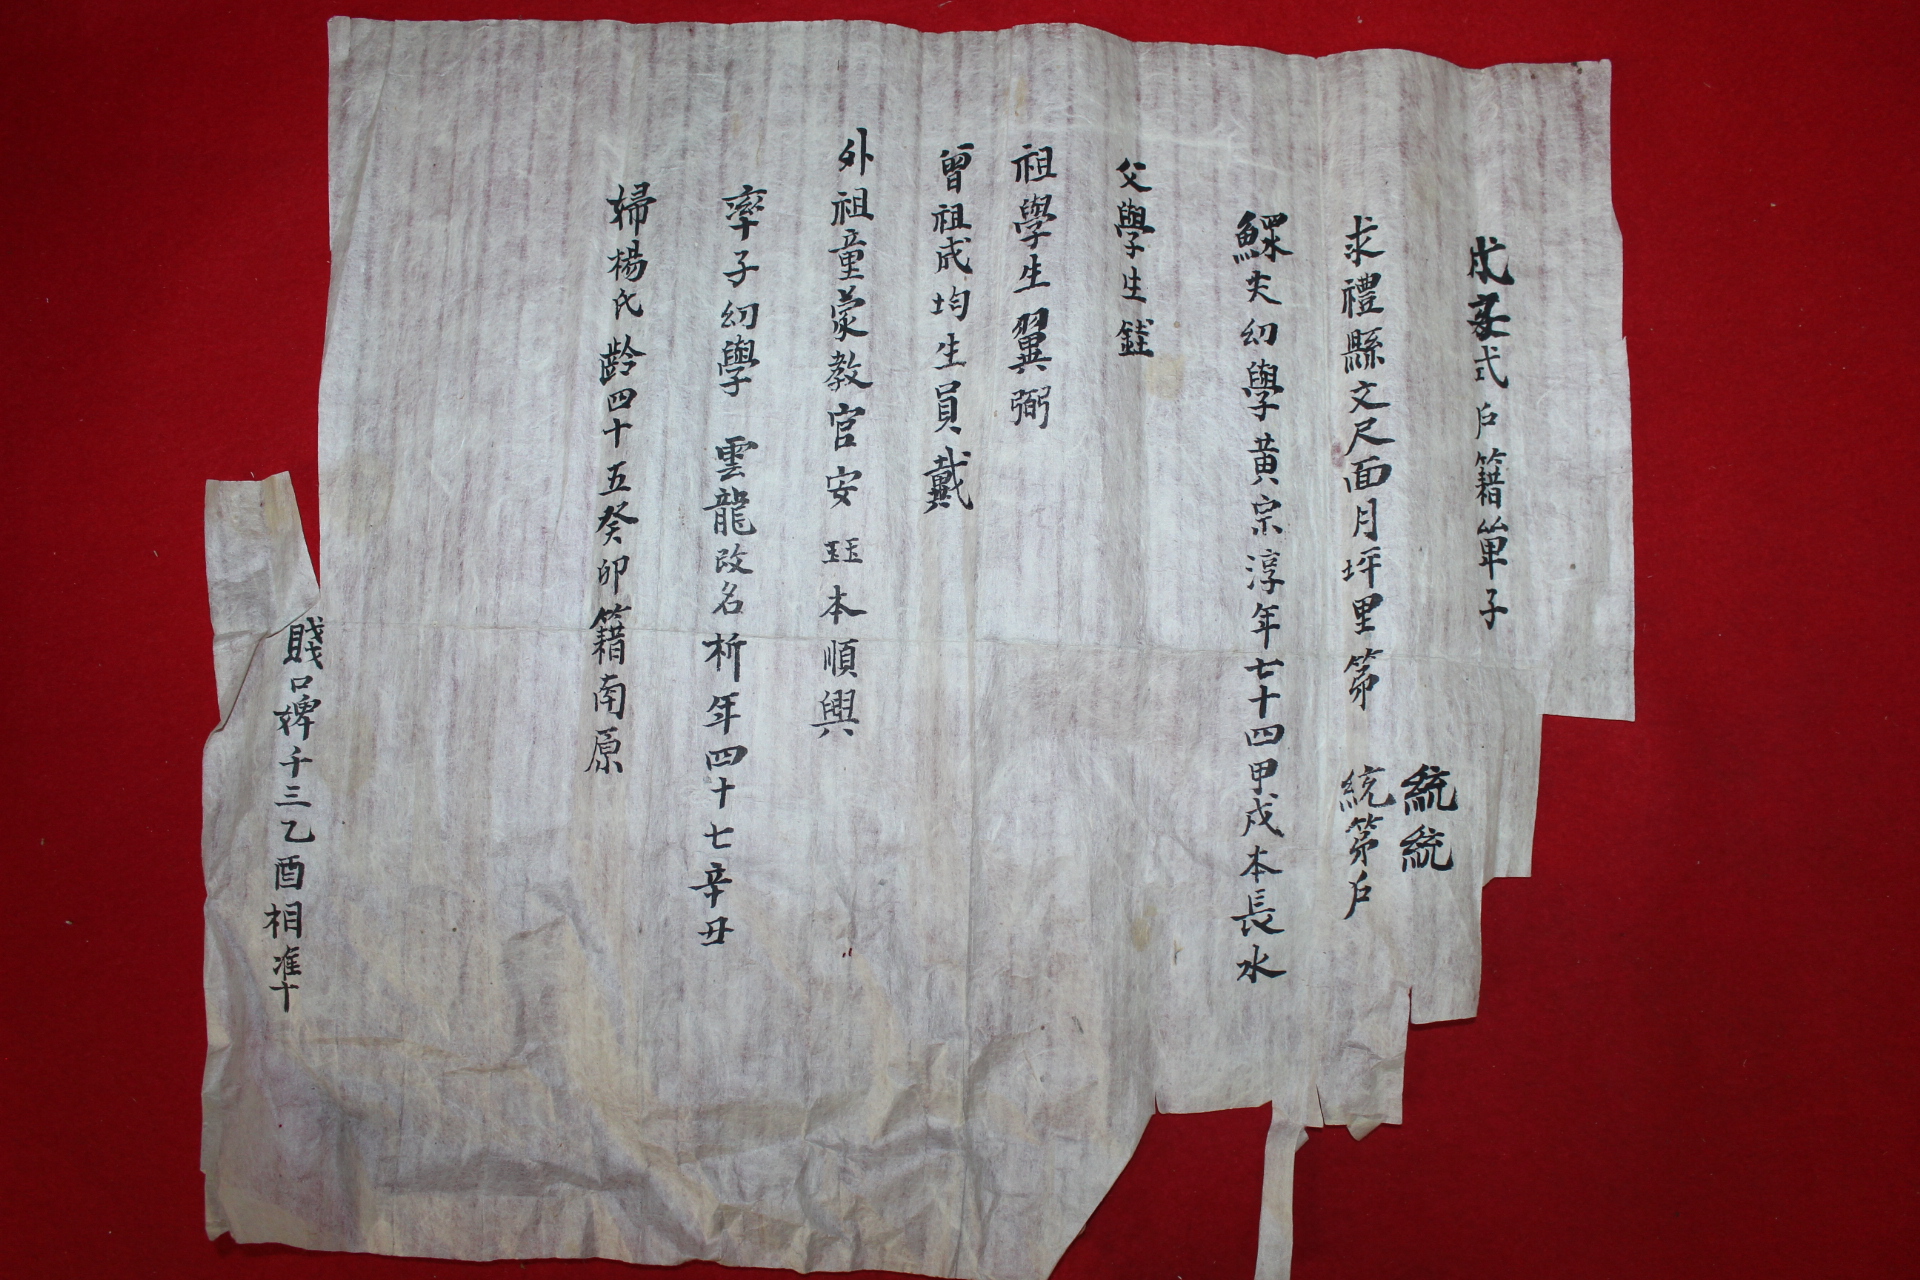 式戶籍單子
統統
求禮縣文尺面月坪里第 統第戶
鰥夫幼學黃宗淳年七十四甲戌本長水
父學生
祖學生翼弼
曾祖成均生員戴
外祖童蒙教官安 珏 本順興
率子幼學 雲龍改名析年四十七辛丑
婦楊氏齡四十五癸卯籍南原
賤口婢千三乙酉相準